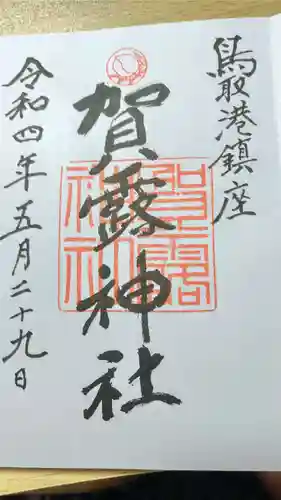 鳥取港鎮座
賀露神社
賀露
神社
令和四年五月二十九日